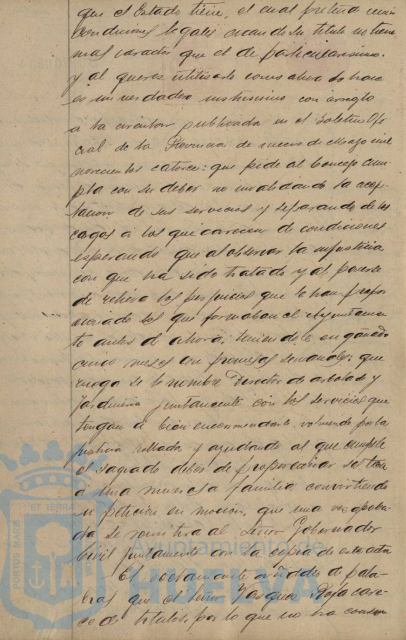 que el Estado tiene, el cual pretende reunir
condiciones legales cuando su título no tiene
mas caracter que el de particularísimo.
y al querer utilizarlo como ahora se hace
es un verdadero con arreglo
a la circular publicada en el Boletin Ofi
cial de la Provincia de nueve de Mayo mil
novecientos catorce: que pide al Concejo cum
pla con su deber no la acep
tacion de sus servicios y separando de los
cargos a los que carecen de condiciones
esperando que al observar la injusticia
con que ha sido tratado y al
de relieve los perjuicios que le han propor
cionado los que formaban el Ayuntamien
to antes de ahora, teniendole engañado
cinco meses con promesas semanales que
ruega se le nombre Director de arbolado y
jardineria juntamente con los servicios que
tengan a bien encomendarle, volviendo por la
justicia hollada y ayudando al que cumple
el sagrado deber de proporcionar
a una numerosa familia convirtiendo
su peticion en mocion, que una vez aproba
da se remitirá al Señor Gobernador
Civil juntamente con la copia de esta acta
El añade de pala
bras que el señor Vargas care
ce de titulos, por lo que no ha
PORTUS MARIS
ET TERRAE
Ayuntamiento de
HUELVA